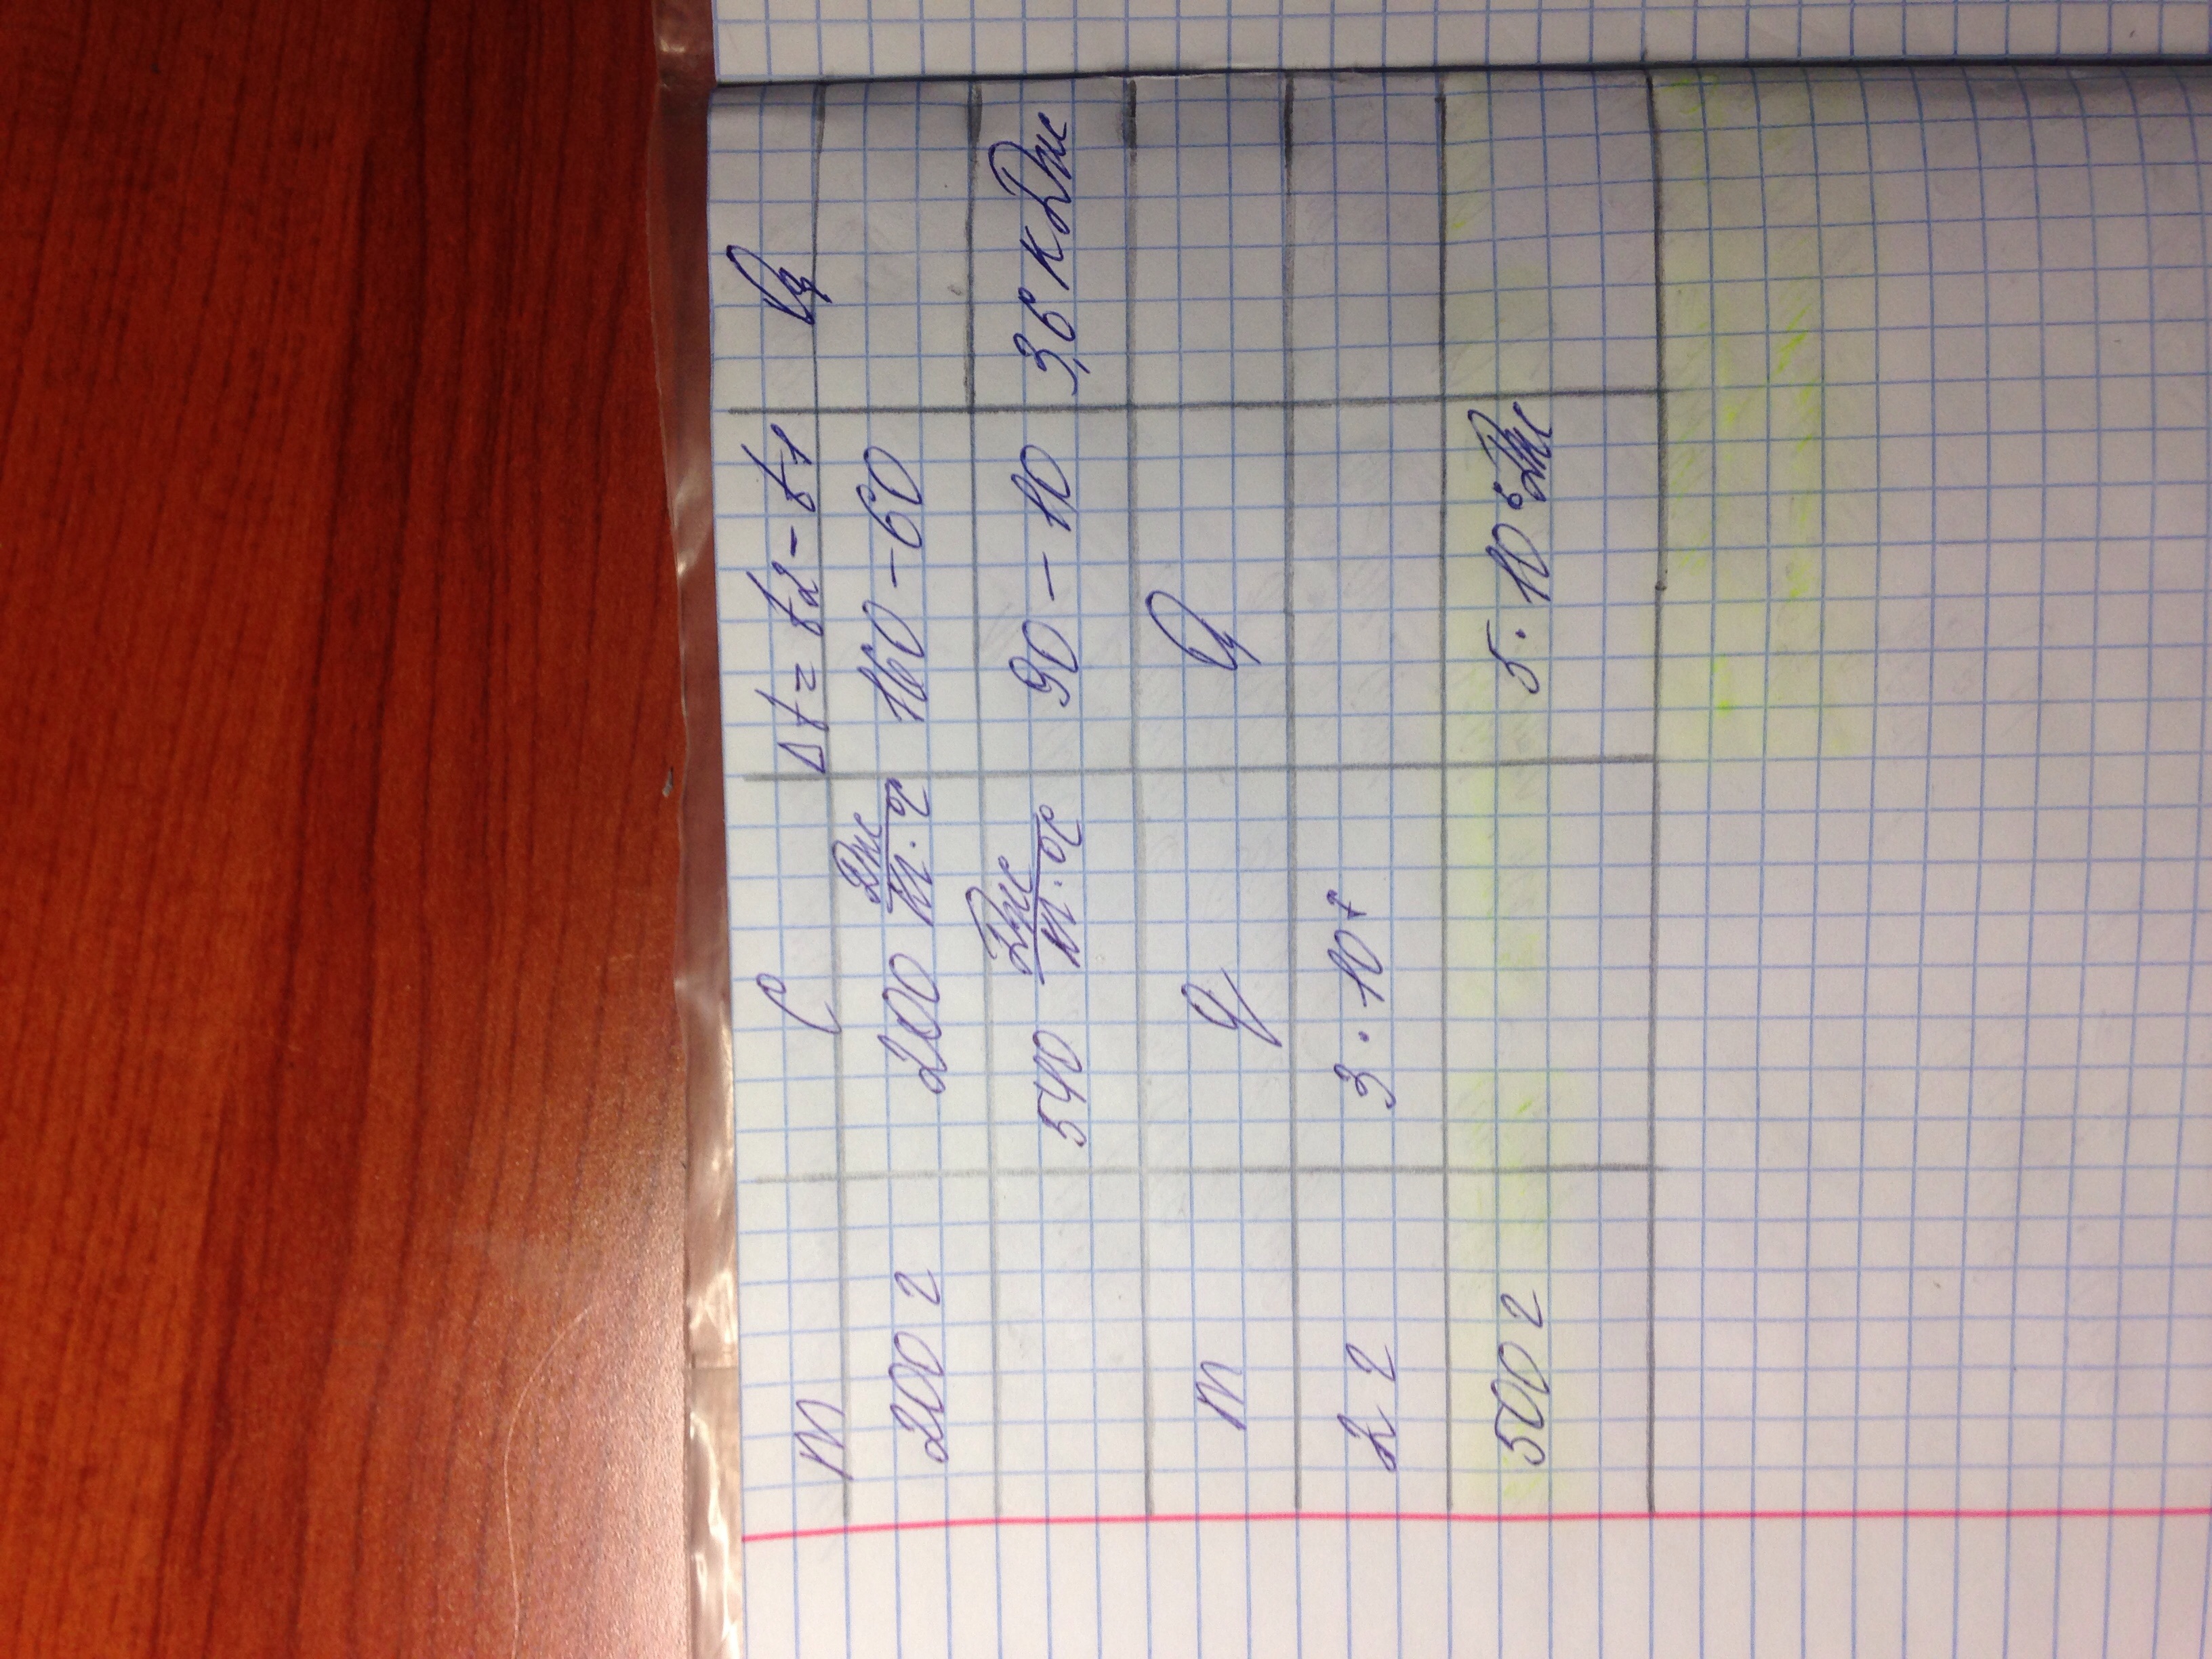 m C Δt = t2 - t1 Q
200 г 2100 Дж/кг·°С 160 - 60
540 Дж/кг·°С 90 - 10 3,6 кДж
m q Q
2 г 3 · 10⁷
500 г 5 · 10⁶ Дж